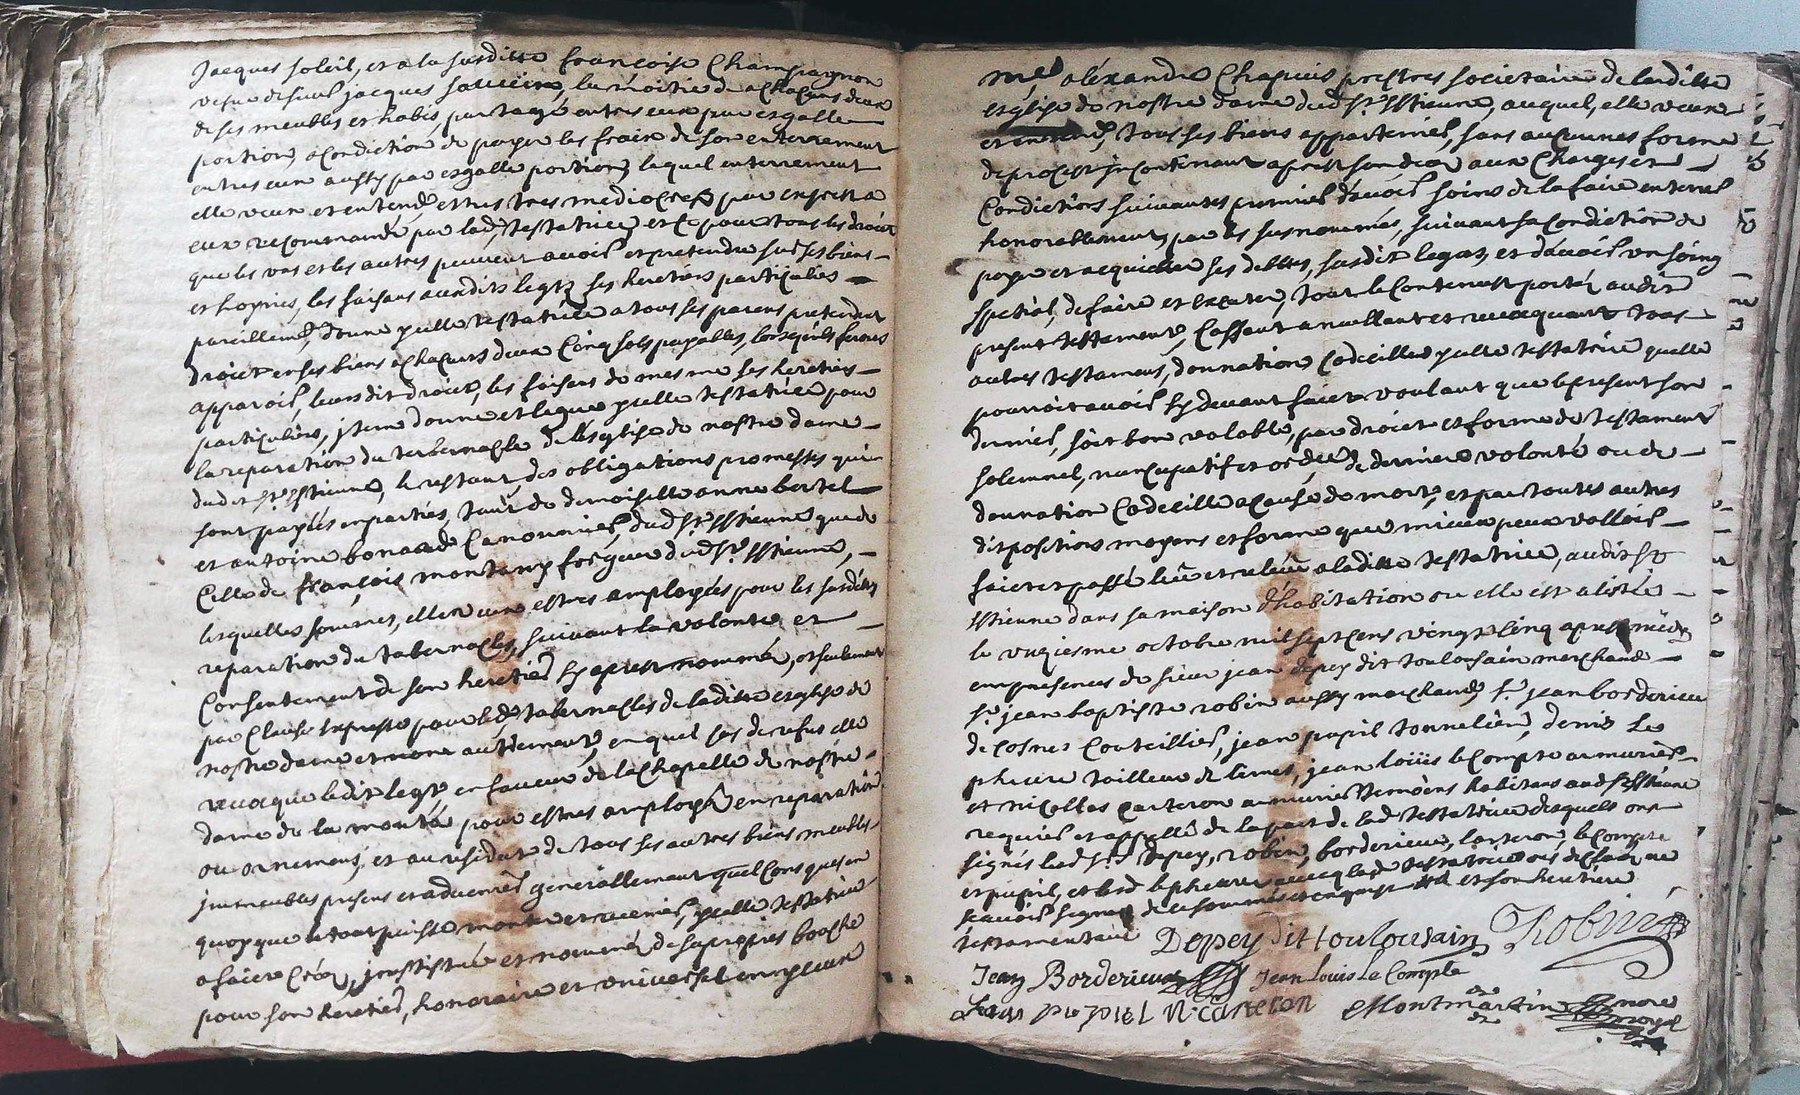 Jacques soleil, et a la susditte françoise Champagnon
vefue de feu jacques, la moitié de chacuns deux
de ses meubles et habis, partagé entres eux par esgalle
portion, a condiction de payer les frais de son enterrement
entres eux aussy par esgalle portion, lequel enterrement
elle veux et entend, estres tres mediocre, par
eux recommandé par lad, testatrice, et Ce pour tous les droict
que les uns et les autres peuvent avoir et pretendre sur ses biens
et hoyries, les faisans ausdits legtz ses heretiers particuliers
pareillemt, donne ycelle testatrice a tous ses parens pretendent
droict en ses biens a chacuns deux Cinq sols payables, lors qu'ils feront
apparoir, leursdit droict, les faisans de mesme ses heretiers
particuliers, jtem donne et legue ycelle testatrice pour
la reparation du tabernacle de l'esglise de nostre dame
dudit st estienne, le restant, des obligations promesses qui
sont payées en parties, tant de demoiselle anne bertel
et antoine bonnard Canonnier, dud st. Estienne que de
Celle de françois montany forgeur dud st. Estienne,
lesquelles sommes, elle veux estres employées pour les susdites
reparation du tabernacles, suivant la volonté et
Consentement de son heretier Cy apres nommé, et seulement
par Clause expresse pour led, tabernacles de laditte esglise de
nostre dame et non autrement, en quel cas de refus elle
revocque ledit legtz en faveur de la Chapelle de nostre
dame de la monta pour estres employé en reparation
ou ornemens, et au residut de tous ses autres biens meubles
jmmeubles presens et advenir generallement quel Cons ques en
quoy que le tout puisse monter et ycelle testatrice
a faict Créé, jnstitué et nommé de sa propres bouche
pour son heretier, honoraire et universel
mre aléxandre Chapuis prestres societaire de laditte
esglise de nostre dame dud st. Estienne, auquel, elle veux
et entend, tous ses biens appartenir, sans aucunes forme
de procest jncontinant aprest son decer aux Charges et
Condictions suivantes premier d'avoir soins de la faire enterrer
honorablement, par les susnommés, suivant sa condiction de
payer et acquitter ses debtes, susdit legatz et d'avoir un soing
spetial, de faire et executer, tout le Contenust porté audit
present testament, Cassant annullant et revocquant tous
autres testamens, donnation Codicilles ycelle testatrice quelle
pourroit avoir Cy devant faict voulant que le present son
dernier, soit bon valable, par droict et forme de testament
solemnel, nuncupatif et de derniere volonté ou de
donnation Codicille a cause de mort, et par toutes autres
dispositions moyens et forme que mieux peux valloir
faict et passé leu et releue a laditte testatrice, audit st
Estienne dans sa maison d'habitation ou elle est alictée
le octobre mil sept cens vingt Cinq apres midy
en presences de sieur jean depey dit toulousain marchand
sr. jean baptiste robin aussy marchand, sr. jean borderieux
de cosnes Couteillier, jean pupil tonnelier, denis le
pheure tailleur de limes, jean loüis le Compte armurier
et nicollas carteron armurier temoins habitans aud st Estienne
requier et appellé de la part de lad testatrice desquels ont
signés led srs depey, robin, borderieux, Carteron, le Compte
et pupil, et led le pheure avecq lad testatrice ont declaré ne
scavoir signer de ce sommés et enquis et son heretier
testamentaire Depey dit toulousain Robin
Jean Borderieux Jean Louis Le Comple
Jean N. Carteron Montmartin